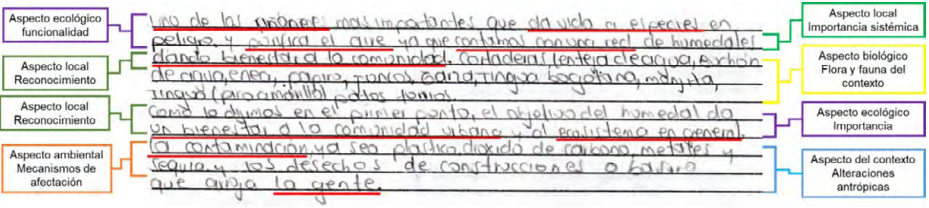 Aspecto ecológico
funcionalidad
Aspecto local
Reconocimiento
Aspecto local
Reconocimiento
Aspecto ambiental
Mecanismos de
afectación
Uno de los riñones mas importantes que da vida a especies en
peligro. y purifica el aire ya que contamos con una red de humedales
dando bienestar a la comunidad. Cortaderas, lenteja de agua, buchón
de agua, enea, papiro, juncos, Tingua bogotana, mirla,
Tingua patos
Como lo dijimos en el primer punto, el objetivo del humedal da
un bienestar a la comunidad urbana y al ecosistema en general.
La contaminación, ya sea plastico, dioxido de carbono, metales y
sequia y los desechos de construcciones o basura
que arroja la gente.
Aspecto local
Importancia sistémica
Aspecto biológico
Flora y fauna del
contexto
Aspecto ecológico
Importancia
Aspecto del contexto
Alteraciones
antrópicas